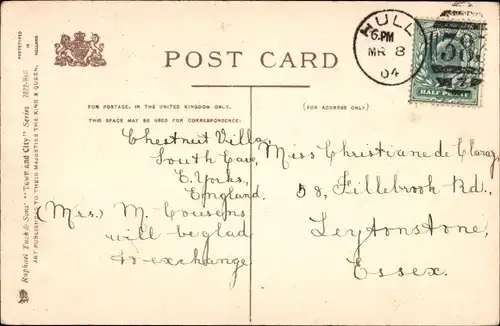 POST CARD
HULL
6.PM
MR 8
04
383
HALF PENNY
FOR POSTAGE, IN THE UNITED KINGDOM ONLY.
THIS SPACE MAY BE USED FOR CORRESPONDENCE.
(FOR ADDRESS ONLY)
Chestnut Villa,
South Cave,
E. Yorks,
England.
(Mrs.) M. Cousens
will be glad
to exchange
Miss Christiane de Claray,
58, Fillebrook Rd.,
Leytonstone,
Essex.
Raphael Tuck & Sons' "Town and City" Series 2122 Hull
ART PUBLISHERS TO THEIR MAJESTIES THE KING & QUEEN.
PHOTOTYPED IN HOLLAND